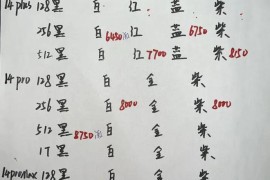 14 plus 128 黑 白 红 蓝 紫
256 黑 白 6450 红 蓝 6750 紫
512 黑 白 红 7700 蓝 紫 8150
14 pro 128 黑 白 金 紫
256 黑 白 8000 金 紫 8000
512 黑 8750 白 金 紫
1T 黑 白 金 紫
14 promax 128 黑 白 金 紫